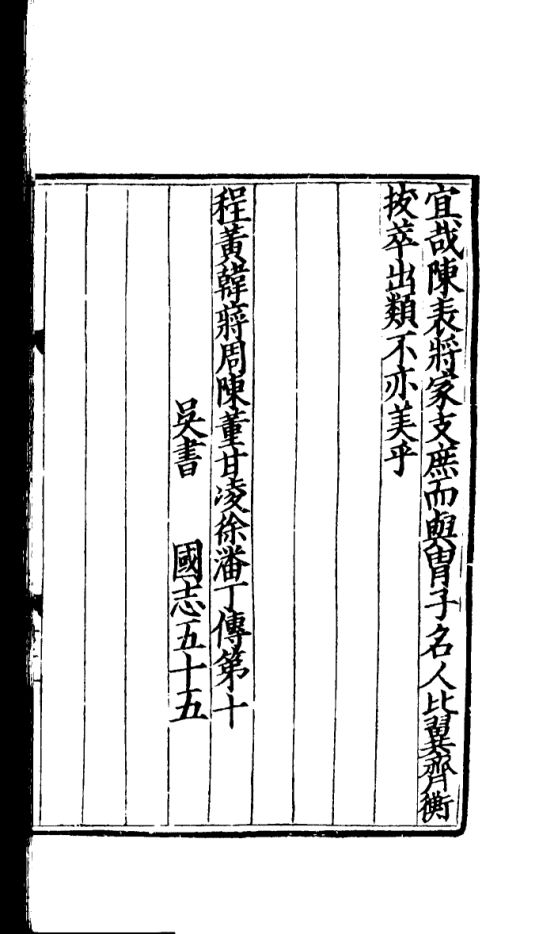 宜哉陳表將家支庶而與冑子名人比翼齊衡
拔萃出類不亦美乎
程黃韓蔣周陳董甘凌徐潘丁傳第十
吳書　國志五十五